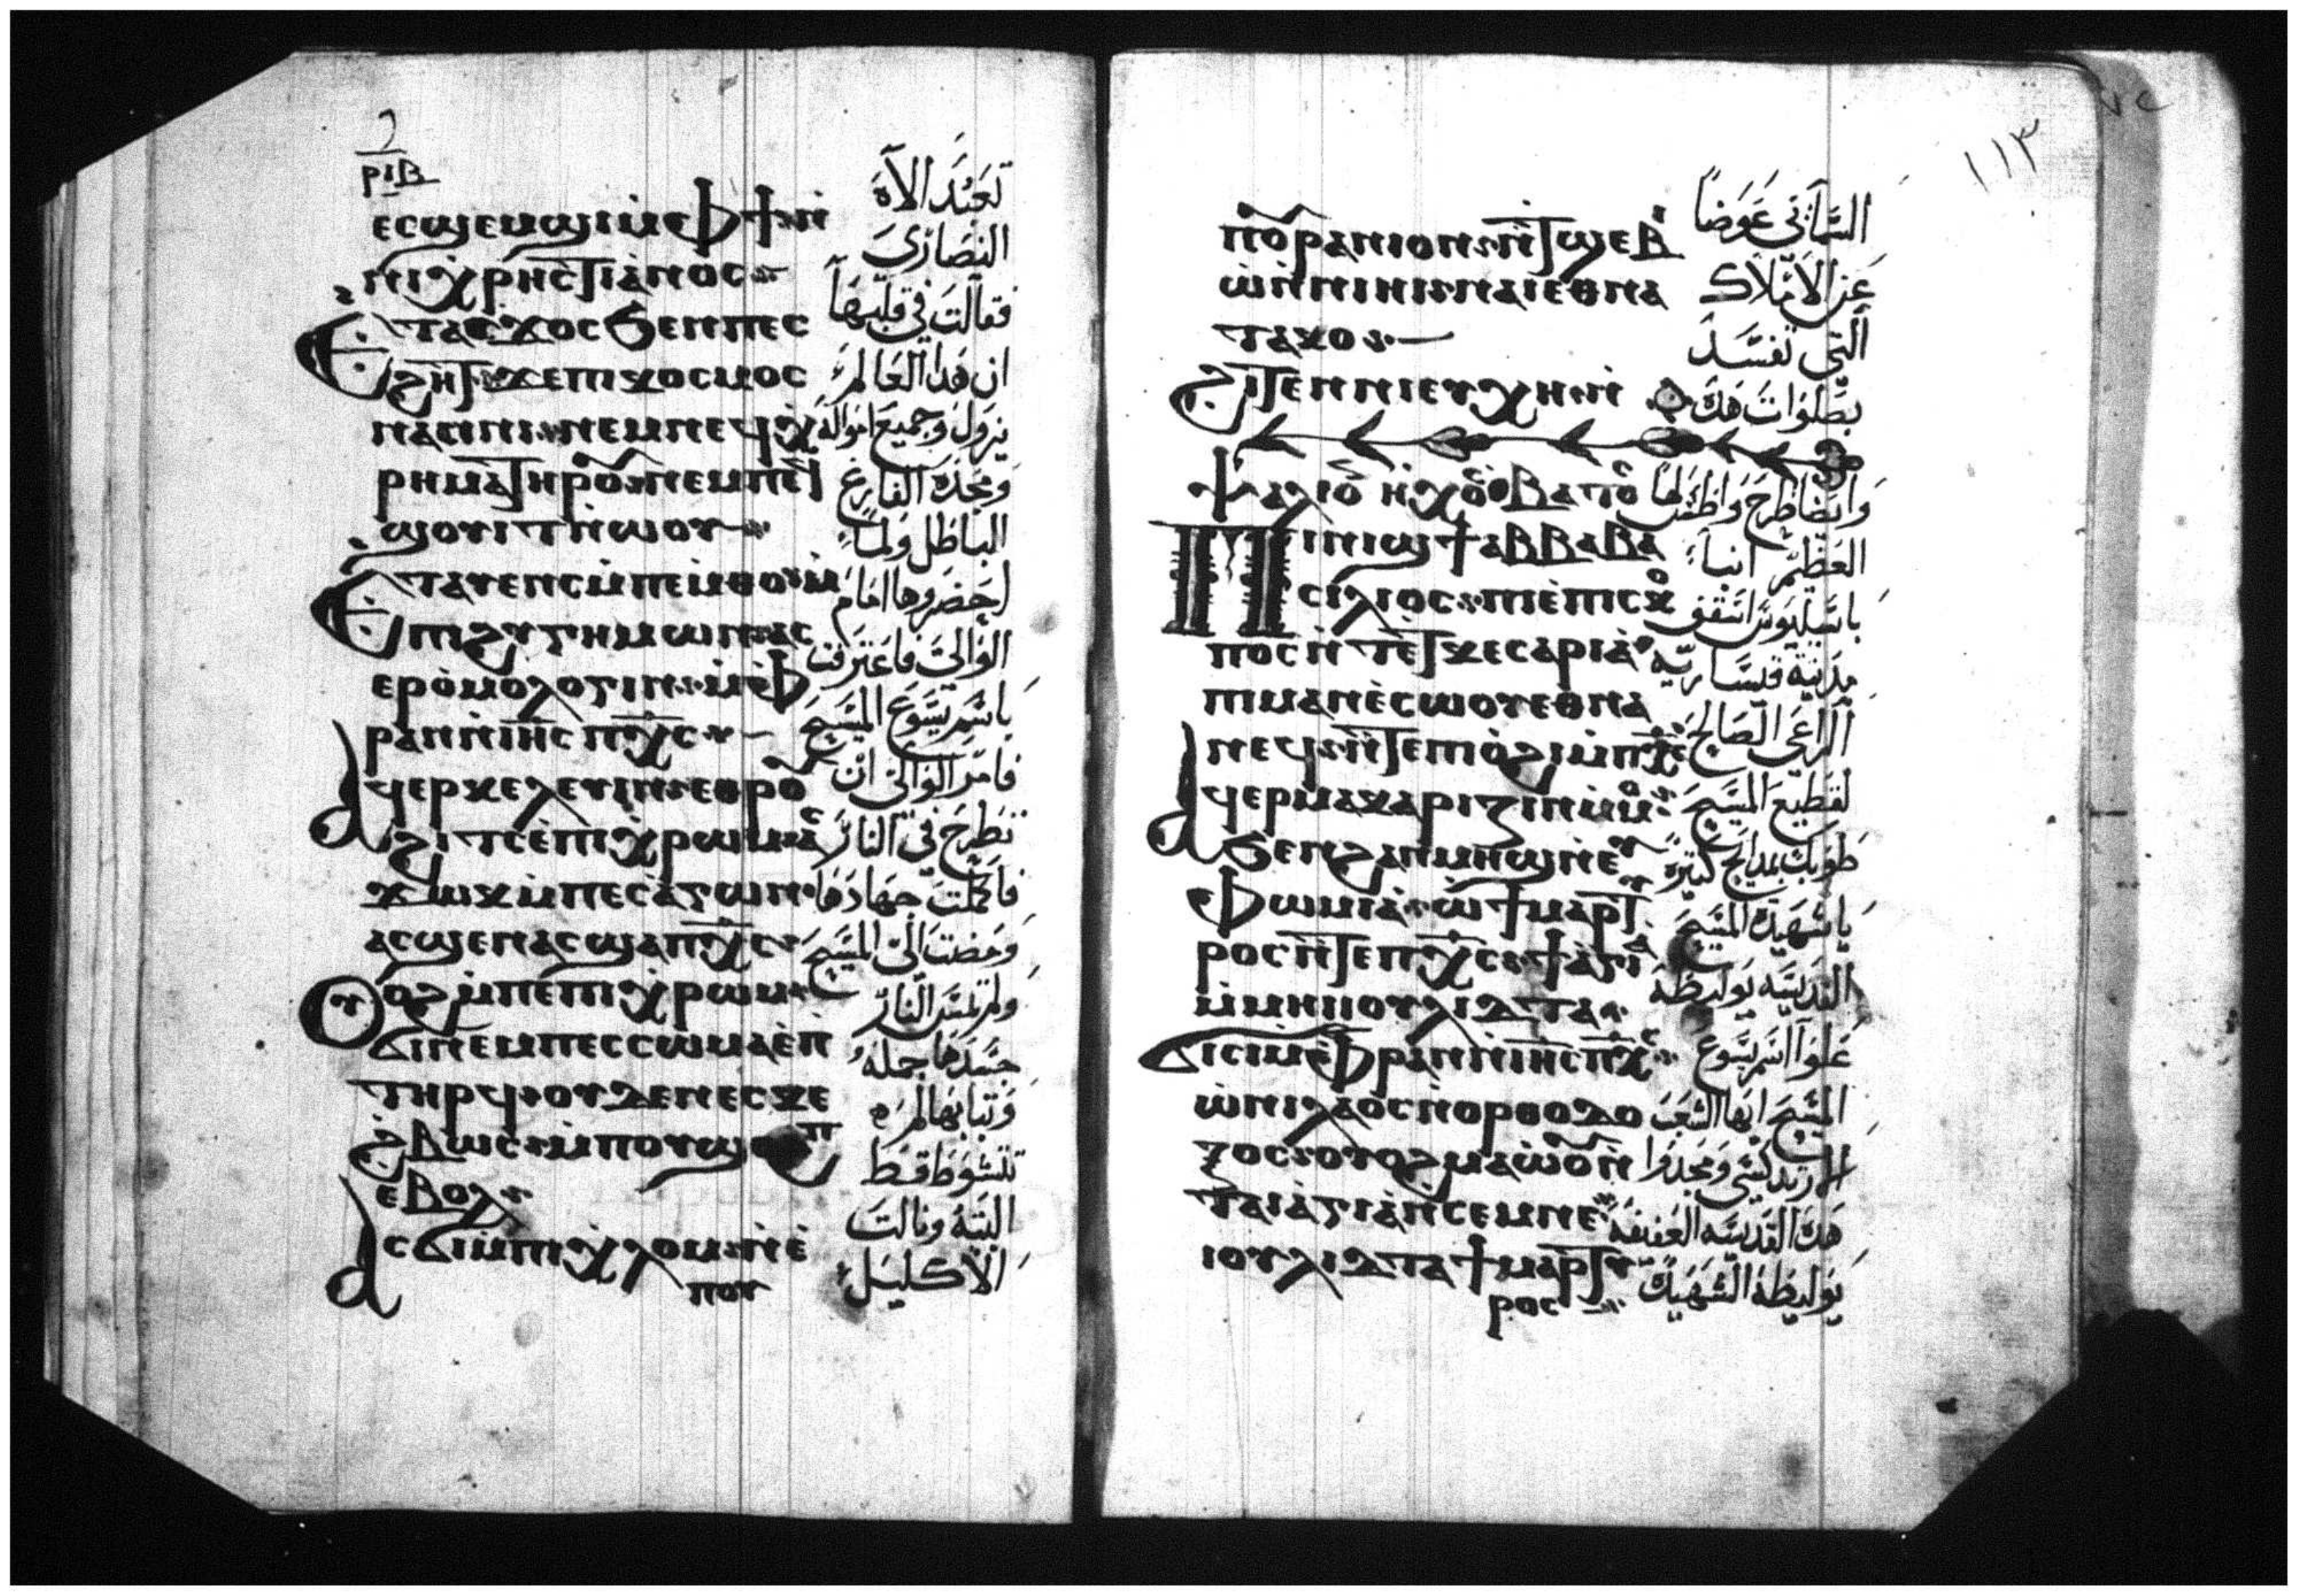 ⲣⲓⲃ
ⲉⲥϣⲉⲙϣⲓⲙ̀ⲫϯⲛ̀
ⲛⲓⲭⲣⲏⲥⲧⲓⲁⲛⲟⲥ
ⲉⲧⲁⲥϫⲟⲥϧⲉⲛⲡⲉⲥ
ϩⲏⲧϫⲉⲡⲓⲕⲟⲥⲙⲟⲥ
ⲛⲁⲥⲓⲛⲓⲛⲉⲙⲛⲉϥⲭ
ⲣⲏⲙⲁⲧⲏⲣⲟⲩⲛⲉⲙⲡⲉϥ
ϣⲟⲩⲓⲧⲛ̀ⲱⲟⲩ
ⲉⲧⲁⲩⲉⲛⲥⲙ̀ⲡⲉⲙ̀ⲑⲟⲙ̀
ⲡⲓϩⲩⲅⲏⲙⲱⲛⲁⲥ
ⲉⲣⲟⲙⲟⲗⲟⲅⲓⲛⲙ̀ⲫ
ⲣⲁⲛⲛ̀ⲓⲏ̅ⲥ̅ⲡⲭ̅ⲥ̅
ⲁϥⲉⲣⲕⲉⲗⲉⲩⲓⲛⲉⲑⲣⲟⲩ
ϩⲓⲧⲥⲉ̀ⲡⲓⲭⲣⲱⲙⲁⲥ
ϫⲱⲕⲙ̀ⲡⲉⲥⲁⲅⲱⲛ
ⲁⲥϣⲉⲛⲁⲥϣⲁⲡⲭ̅ⲥ̅
ⲟⲩⲟϩⲙ̀ⲡⲉⲡⲓⲭⲣⲱⲙ
ϭⲓⲛⲉⲙⲡⲉⲥⲥⲱⲙⲁⲉ̀ⲡ
ⲧⲏⲣϥⲟⲩⲇⲉⲛⲉⲥⲕⲉ
ϩⲃⲱⲥⲙ̀ⲡⲟⲩϣⲱⲡ
ⲉⲃⲟⲗ
ⲁⲥϭⲓⲙ̀ⲡⲓⲭⲗⲟⲙⲛ̀ⲉ̀
ⲡⲟⲩ
تعبد الاه
النصارى
فقالت في قلبها
ان هدا العالم
يزول وجميع امواله
ومجده الفارغ
الباطل ولما
احضروها امام
الوالى فاعترفت
باسم يسوع المسيح
فامر الوالى ان
تطرح في النار
فاكملت جهادها
ومضت الى المسيح
ولم تمس النار
جسدها جمله
وتيابها لم
تتشوط قط
البته ونالت
الاكليل
١١٣
ⲡⲟⲩⲣⲁⲛⲓⲟⲛⲛ̀ⲧϣⲉⲃ
ⲱⲛ̀ⲛⲓⲛⲓⲛⲁⲓⲉⲑⲛⲁ
ⲧⲁⲕⲟ
ϩⲓⲧⲉⲛⲛⲓⲉⲩⲭⲏⲛ̀
ⲯⲁⲗⲓ ⲏⲭⲟⲥ ⲃⲁⲧⲟⲥ
ⲡⲓⲛⲓϣϯⲁⲃⲃⲁⲃⲁ
ⲥⲓⲗⲓⲟⲥⲡⲓⲉ̀ⲡⲓⲥⲕⲟ
ⲡⲟⲥⲛ̀ⲧⲉ̀ⲧⲕⲉⲥⲁⲣⲓⲁ
ⲡⲓⲙⲁⲛⲉ̀ⲥⲱⲟⲩⲉⲑⲛⲁ
ⲛⲉϥⲛ̀ⲧⲉⲡⲓⲟ̀ϩⲓⲙ̀ⲡⲭ̅ⲥ̅
ⲁϥⲉⲣⲙⲁⲕⲁⲣⲓⲍⲓⲛⲙ̀ⲙⲟ
ϧⲉⲛϩⲁⲛⲙⲏϣⲛ̀ⲉⲩ
ⲫⲱⲙⲓⲁⲱ̀ϯⲙⲁⲣⲧⲩ
ⲣⲟⲥⲛ̀ⲧⲉⲡⲭ̅ⲥ̅ϯⲁⲅⲓⲁ
ⲙ̀ⲙⲏⲓⲓⲟⲩⲗⲓⲇⲧⲁ
ϭⲓⲥⲓⲙ̀ⲫⲣⲁⲛⲛ̀ⲓⲏ̅ⲥ̅ⲡⲭ̅ⲥ̅
ⲱ̀ⲛⲓⲗⲁⲟⲥⲛ̀ⲟⲣⲑⲟⲇⲟ
ⲝⲟⲥⲟⲩⲟϩⲙⲁⲱ̀ⲟⲩⲛ̀
ⲧⲁⲓⲁ̀ⲅⲓⲁⲛ̀ⲥⲉⲙⲛⲉ
ⲓⲟⲩⲗⲓⲇⲧⲁϯⲙⲁⲣⲧⲩ
ⲣⲟⲥ
السمآئى عوضاً
عن الاملاك
التى تفسد
بصلوات هده
وايضا طرح واطس لها
العظيم انبا
باسليوس اسقف
مدينة قيساريه
الراعى الصالح
لقطيع المسيح
طوبك بمدايح كتيره
يا شهيدة المسيح
القديسه يوليطه
علوا اسم يسوع
المسيح ايها الشعب
الارتدكسى ومجدوا
هده القديسه العفيفه
يوليطه الشهيده